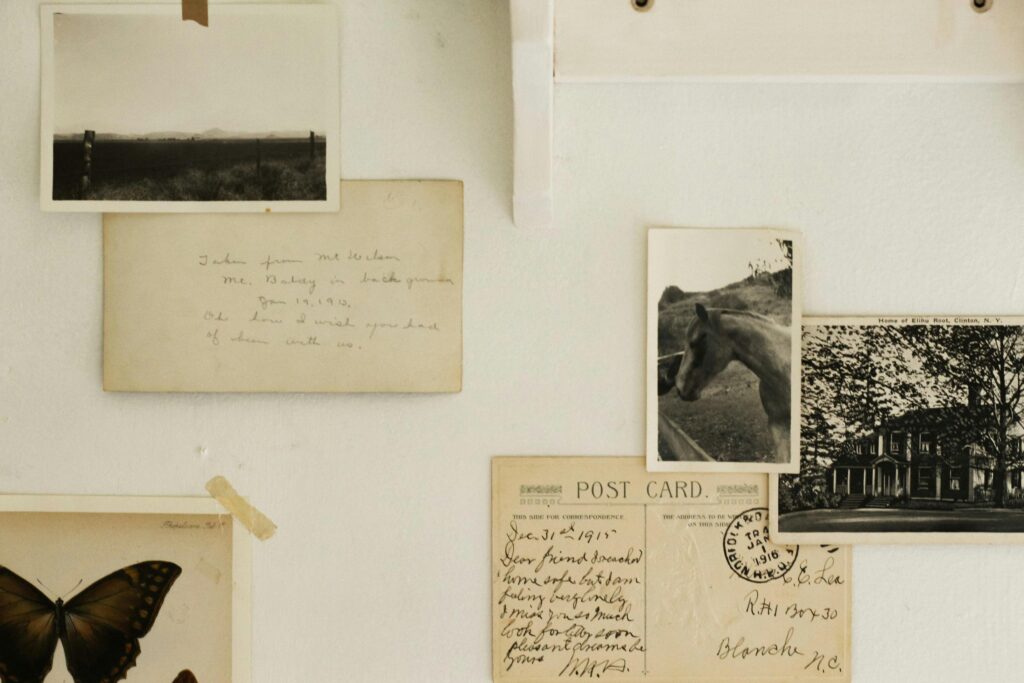 Taken from Mt Wilson
Mt. Baldy in back ground
Jan 19, 191
Oh how I wish you had
of been with us.
Home of Elihu Root, Clinton, N. Y.
POST CARD.
THIS SIDE FOR CORRESPONDENCE
THE ADDRESS TO BE
ON THIS SIDE
Dec. 31st 1915
Dear friend I reached
home safe but I am
feeling very lonely
I miss you so much
look for letter soon
pleasant dreams be
yours
NORFOLK
TRA
JAN
1
1916
R.P.O.
C. E. Lea
R#1 Box 30
Blanche
N.C.